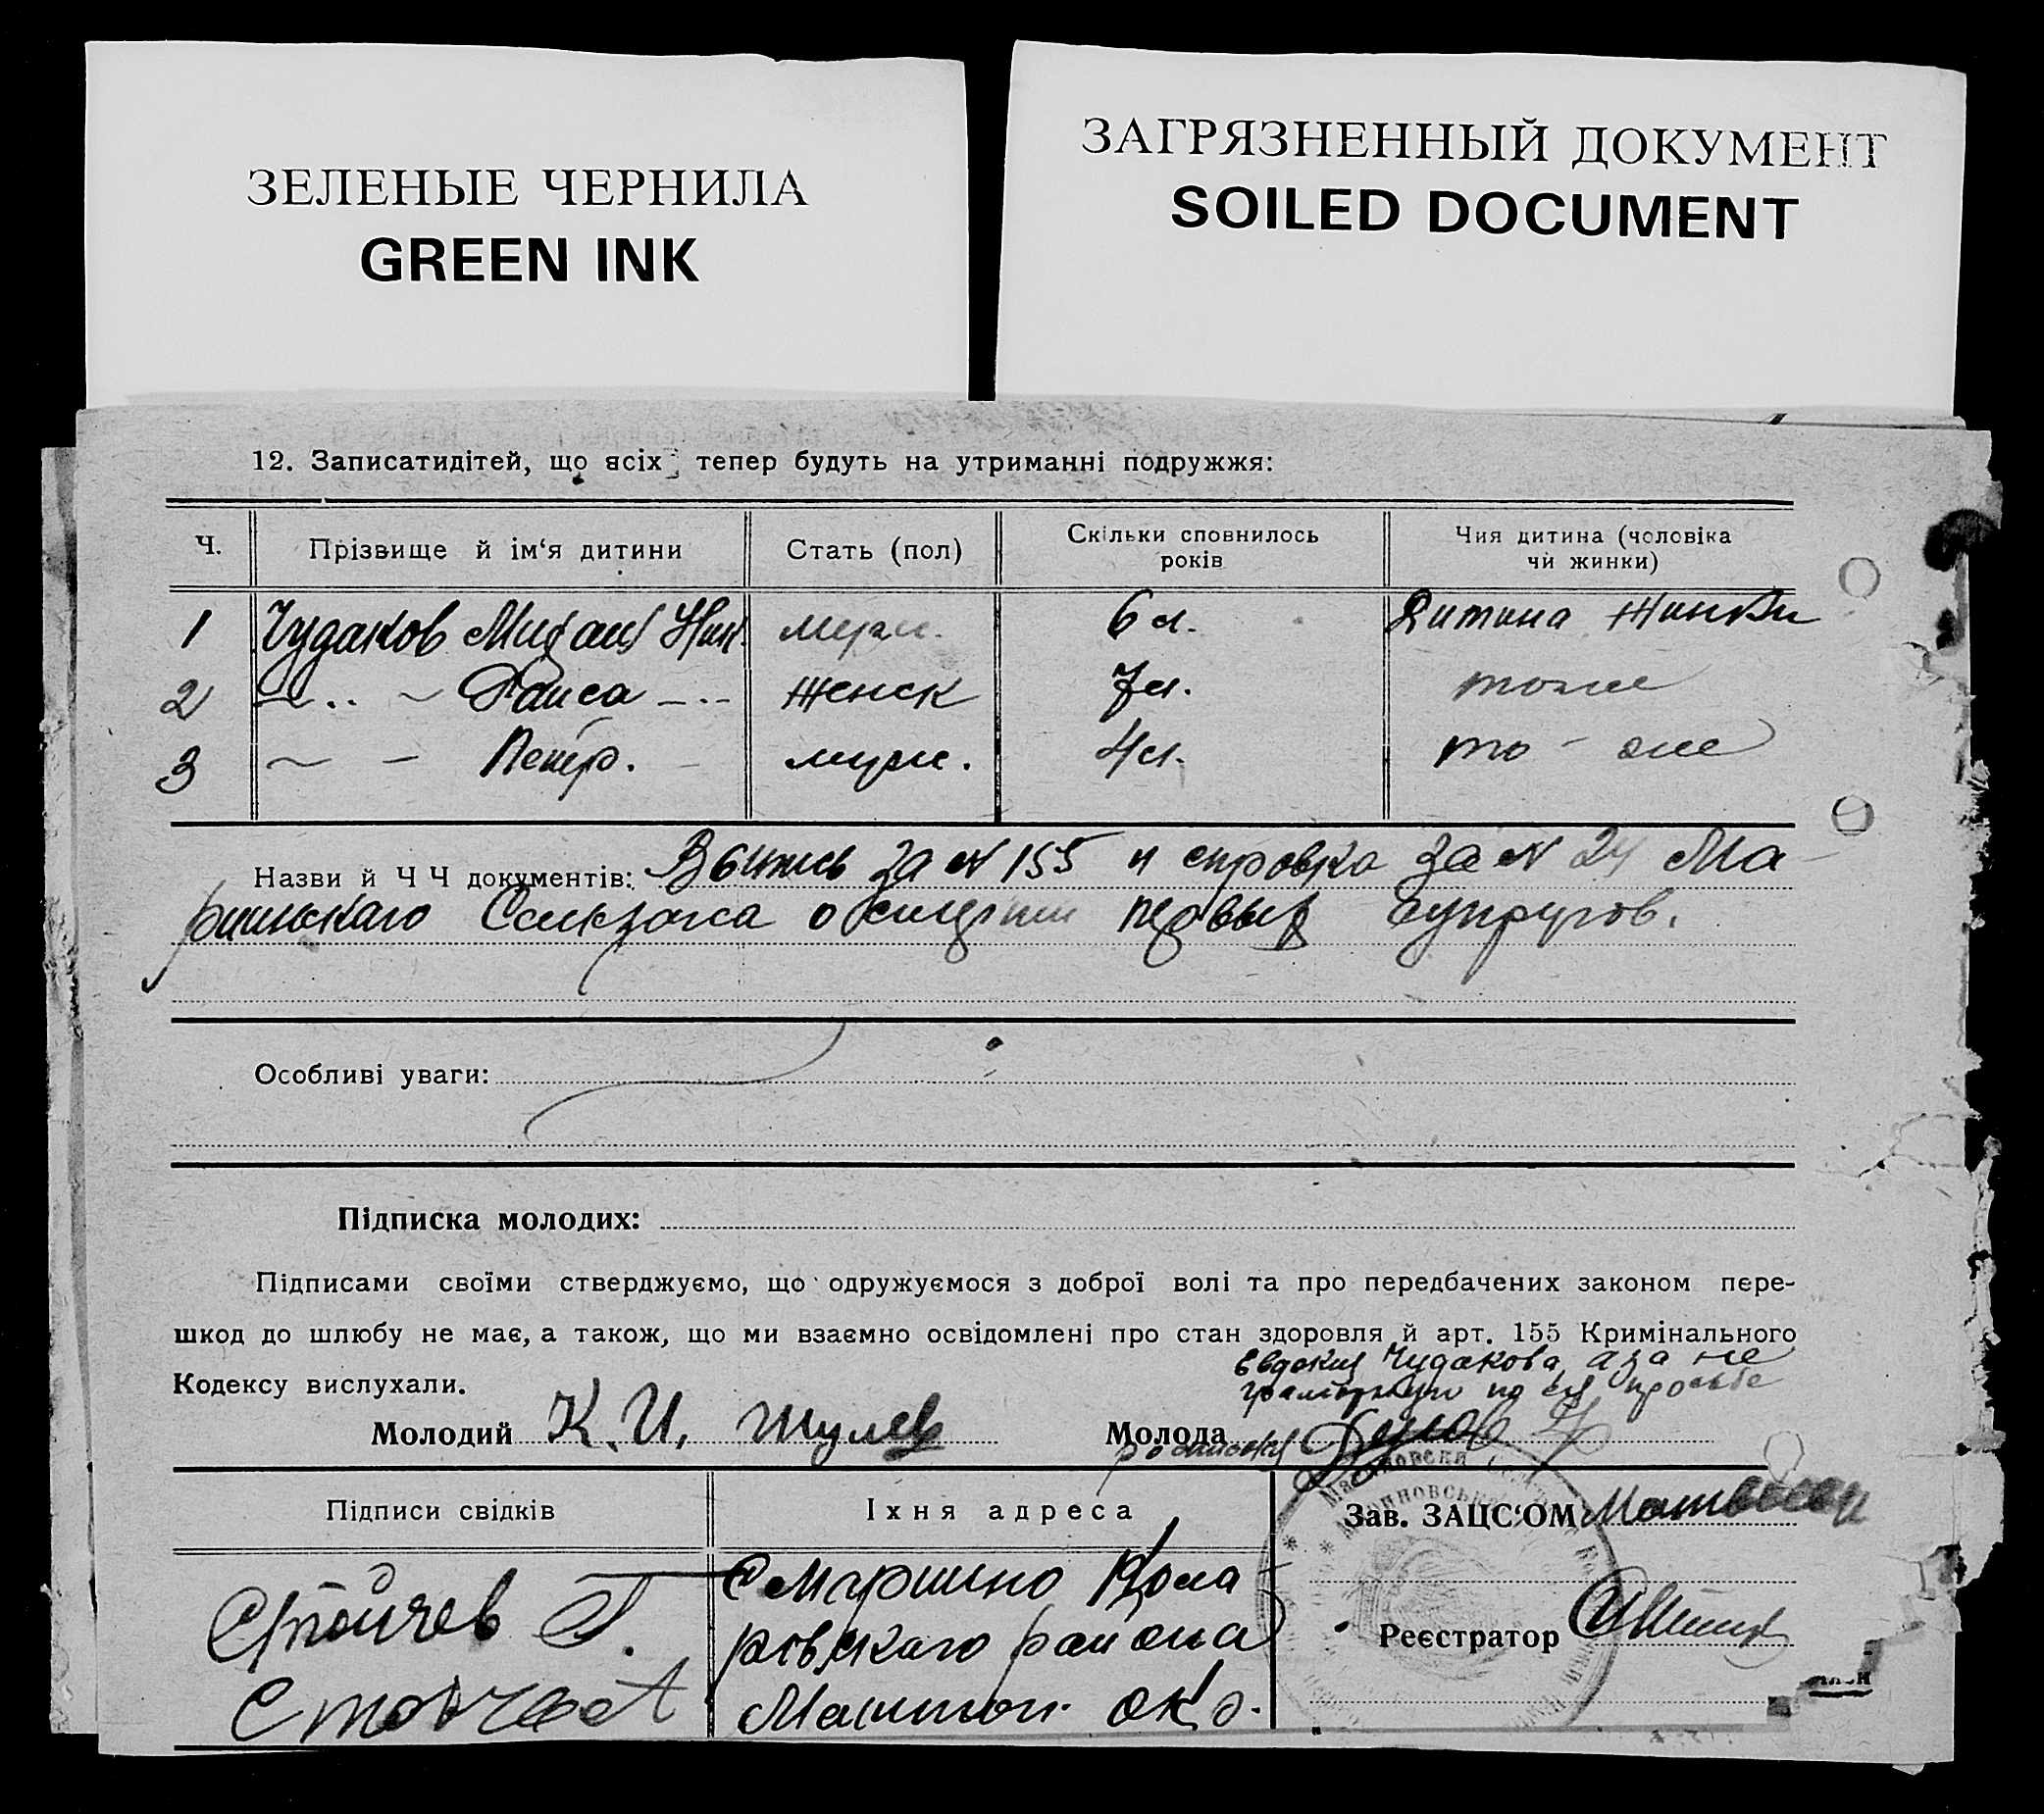 ЗЕЛЕНЫЕ ЧЕРНИЛА
GREEN INK
ЗАГРЯЗНЕННЫЙ ДОКУМЕНТ
SOILED DOCUMENT
12. Записатидітей, що всіх тепер будуть на утриманні подружжя:
Ч. Прізвище й ім‘я дитини Стать (пол) Скільки сповнилось років Чия дитина (чоловіка чи жинки)
1 Чудаков Михаил Ник. муж. 6 л. Дитина жинки
2 — .. — Раиса — .. женск 7 л. тоже
3 — — Петр. муж. 4 л. то - же
Назви й Ч Ч документів: Выпись за N 155 и справка за N 24 Ма-
ринскаго Сельзагса о смерти первых супругов.
Особливі уваги:
Підписка молодих:
Підписами своїми стверджуємо, що одружуємося з доброї волі та про передбачених законом пере-
шкод до шлюбу не має, а також, що ми взаємно освідомлені про стан здоровля й арт. 155 Кримінального
Кодексу вислухали.
Евдокия Чудакова, а за не
грамотную по ея просьбе
Молодий К. И. Шулев Молода росписался
Підписи свідків Їхня адреса Зав. ЗАЦС‘ОМ
Стойчев Г. С Марино Кола
ровскаго района Реєстратор
Стойчев А Мелитоп. окр.